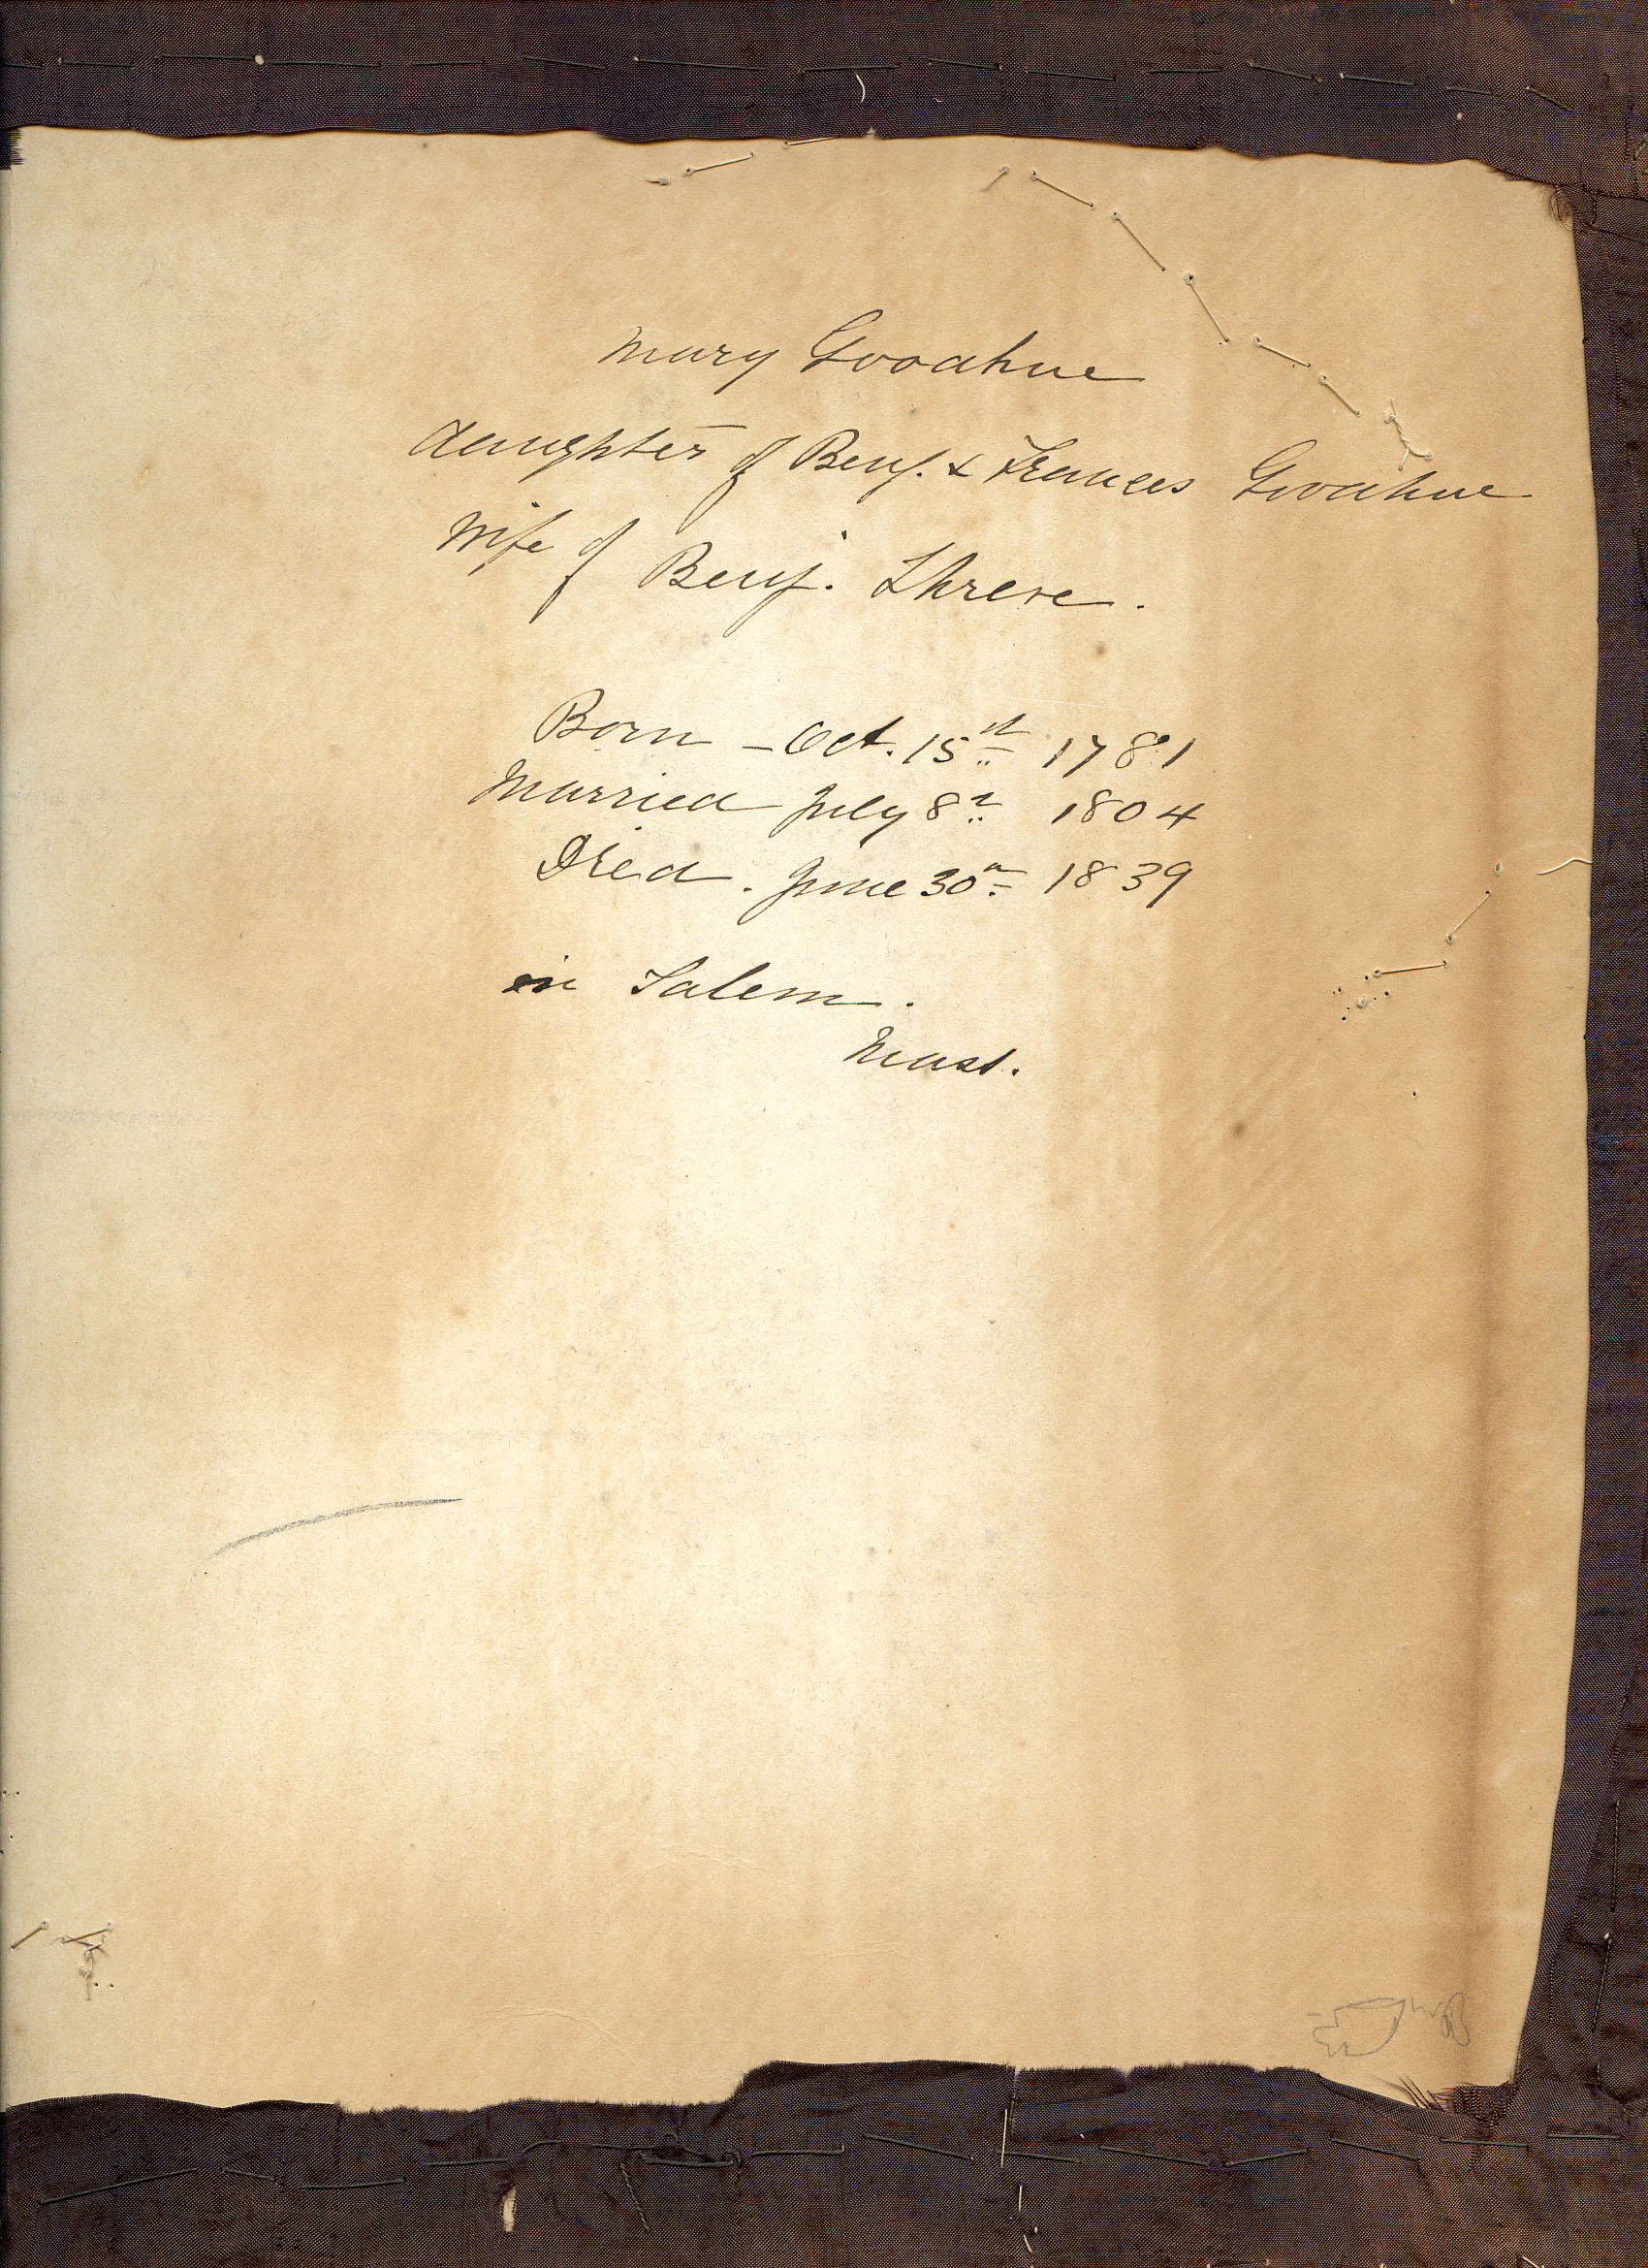 Mary Goodhue
daughter of Benj. & Frances Goodhue
Wife of Benj. Shreve.
Born - Oct. 15th 1781
Married July 8th 1804
Died. June 30th 1839
in Salem.
Mass.